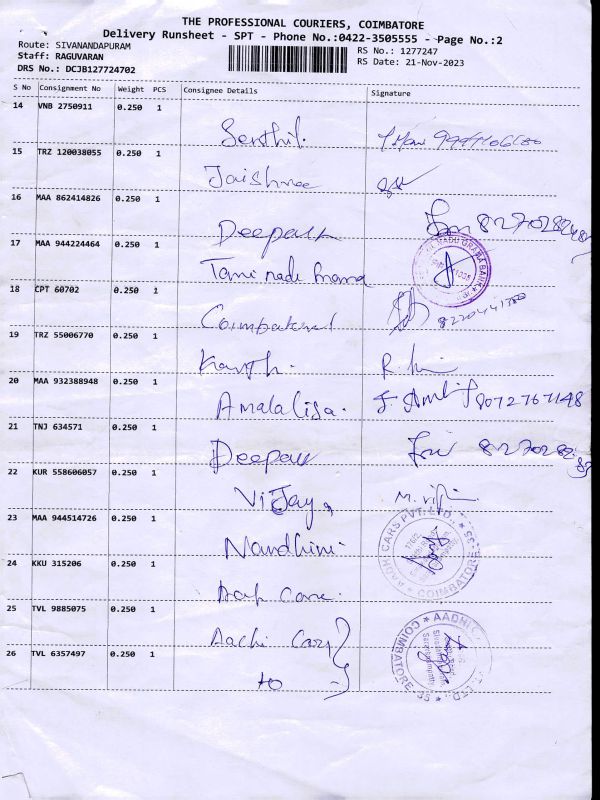 THE PROFESSIONAL COURIERS, COIMBATORE
Delivery Runsheet - SPT - Phone No.:0422-3505555 - Page No.:2
Route: SIVANANDAPURAM
RS No.: 1277247
Staff: RAGUVARAN
RS Date: 21-Nov-2023
DRS No.: DCJB127724702
S No Consignment No Weight PCS Consignee Details Signature
14 VNB 2750911 0.250 1
Senthil.
15 TRZ 120038055 0.250 1
Jaishree
16 MAA 862414826 0.250 1
Deepak
17 MAA 944224464 0.250 1
Tamil nadu Grama
18 CPT 60702 0.250 1
Coimbatore 8220441380
19 TRZ 55006770 0.250 1
Karth.
20 MAA 932388948 0.250 1
Amalalisa. 8072767148
21 TNJ 634571 0.250 1
Deepak
22 KUR 558606057 0.250 1
Vijay
23 MAA 944514726 0.250 1
AADHI CARS PVT. LTD. COIMBATORE-35
Nandhini
24 KKU 315206 0.250 1
25 TVL 9885075 0.250 1
Aachi Cars
COIMBATORE-35
26 TVL 6357497 0.250 1